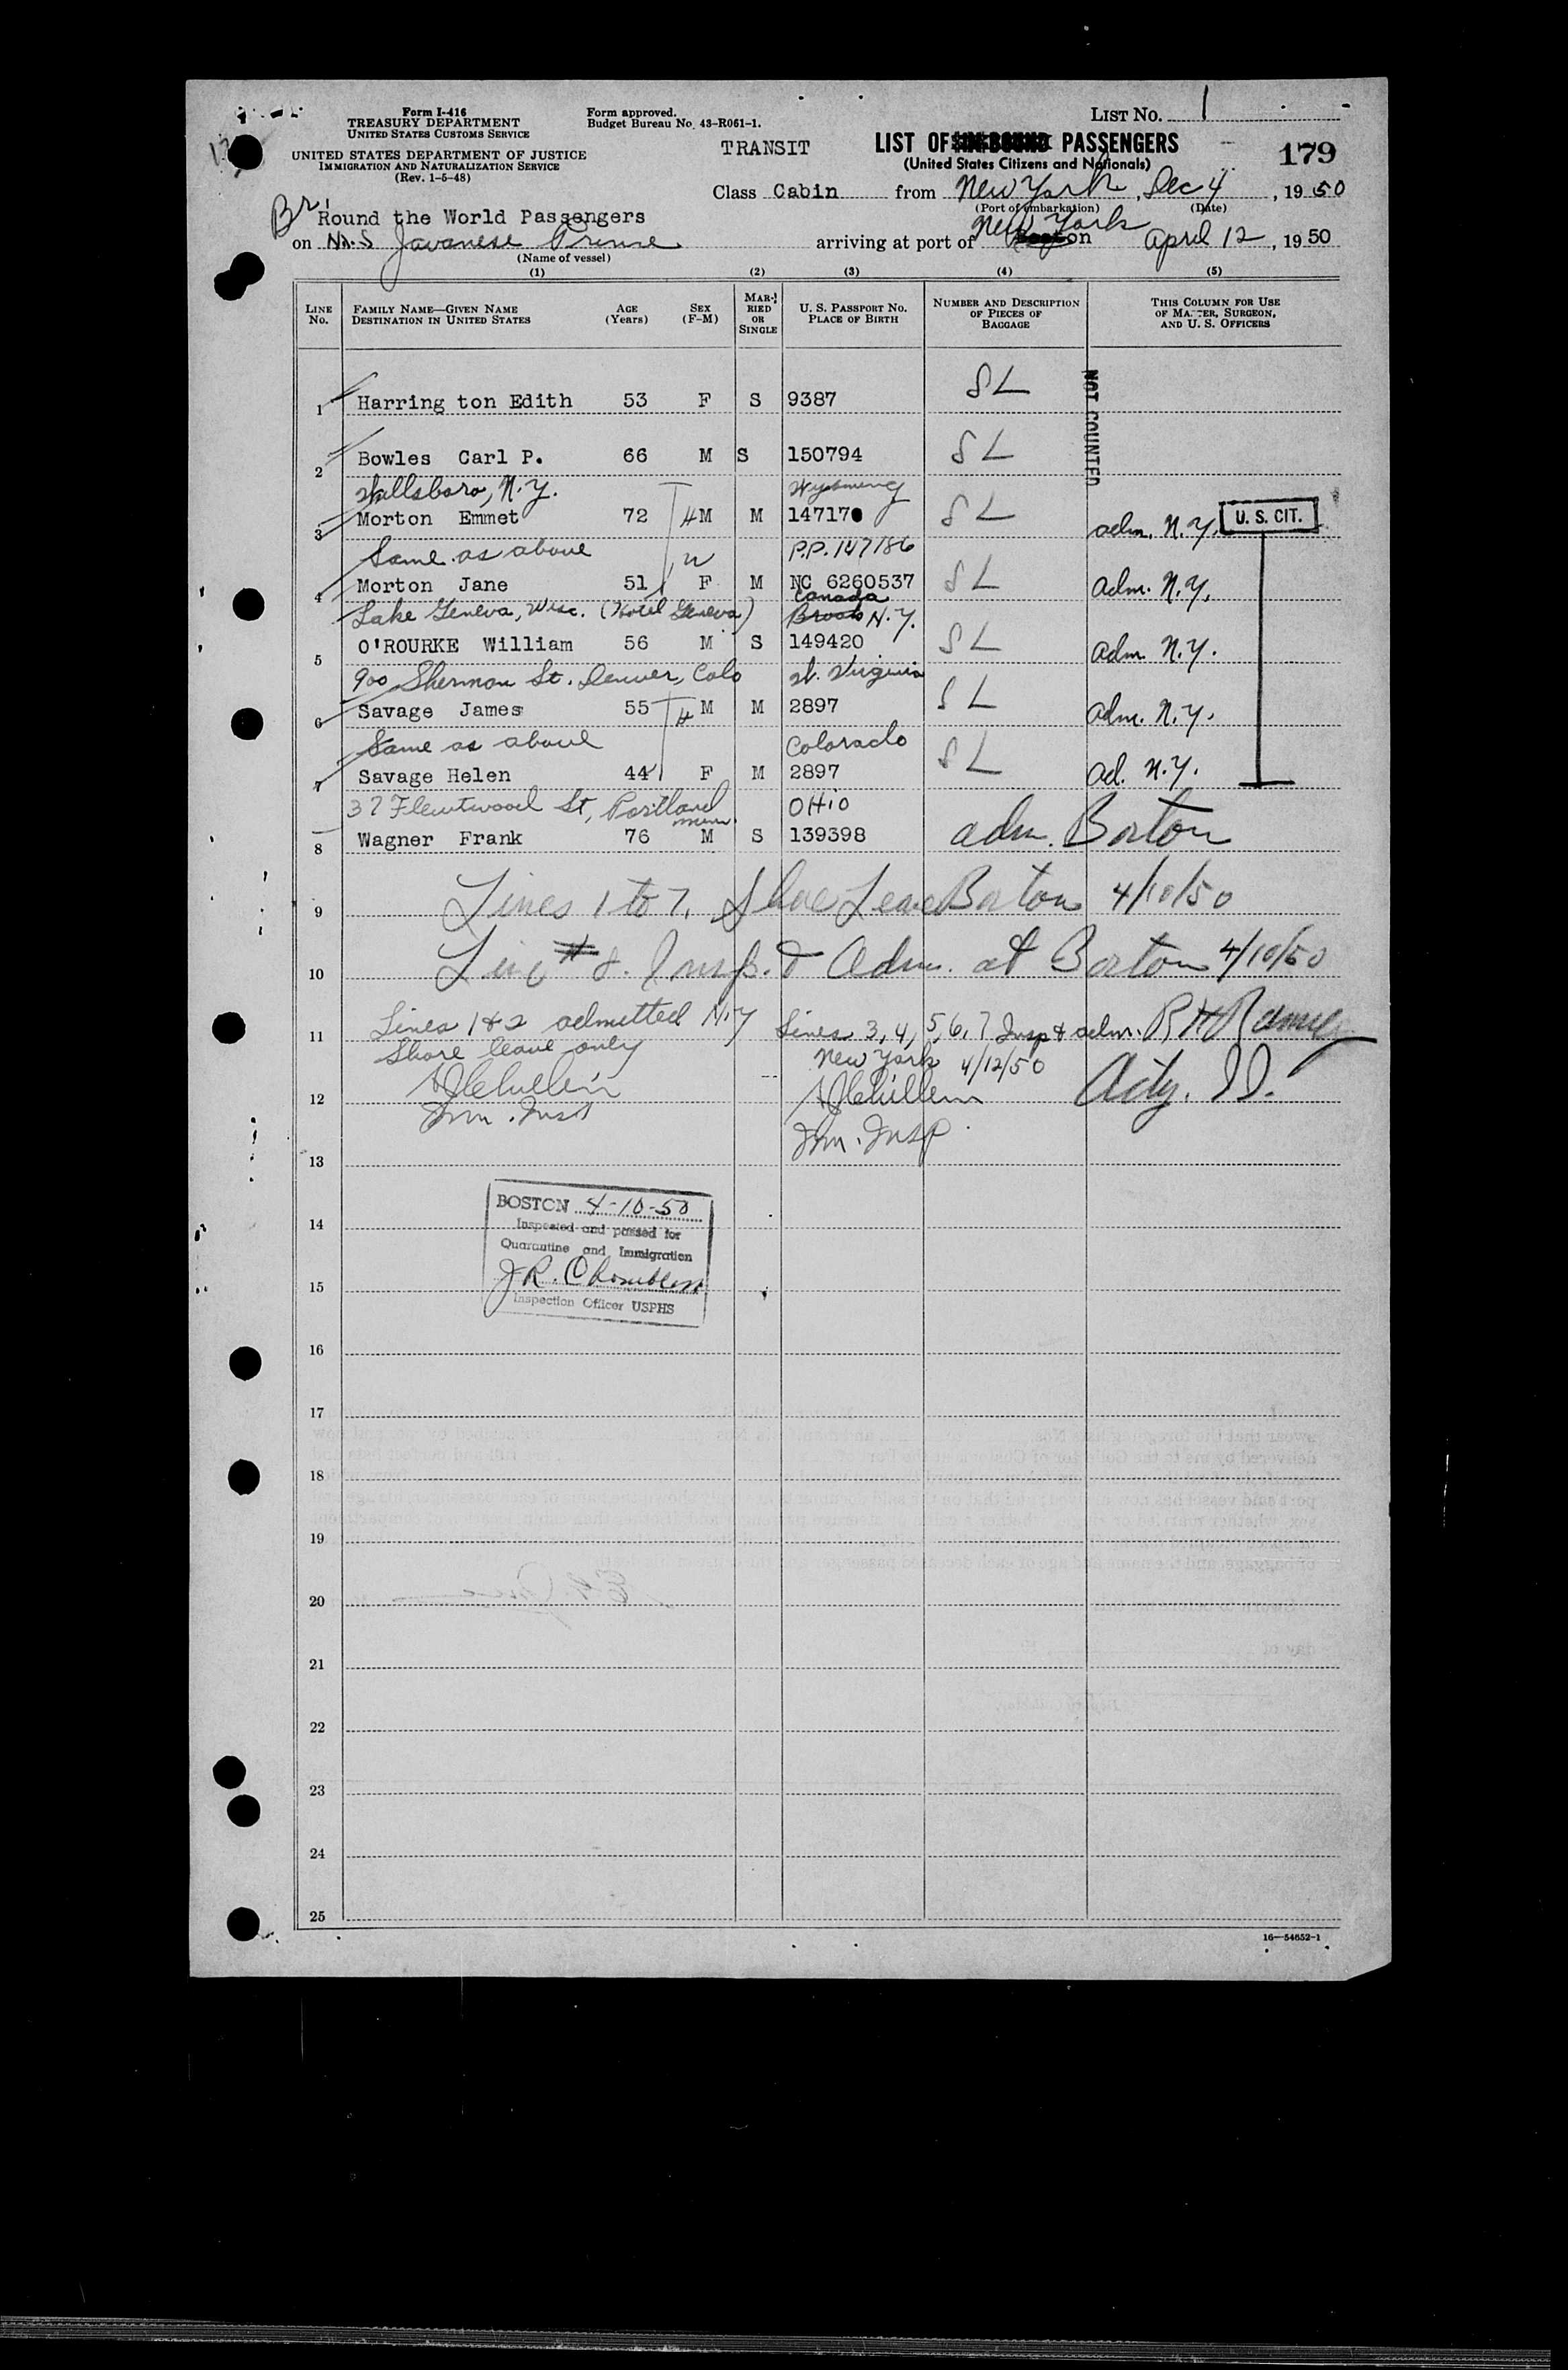 Form I-416
TREASURY DEPARTMENT
UNITED STATES CUSTOMS SERVICE
UNITED STATES DEPARTMENT OF JUSTICE
IMMIGRATION AND NATURALIZATION SERVICE
(Rev. 1-5-48)
Form approved.
Budget Bureau No. 43-R061-1.
LIST No. 1
TRANSIT
LIST OF IN-BOUND PASSENGERS
(United States Citizens and Nationals)
179
Class Cabin from New York, Dec 4, 1950
(Port of embarkation) (Date)
Br.
Round the World Passengers
on M.S Javanese Prince arriving at port of New York Boston April 12, 1950
(Name of vessel)
(1) (2) (3) (4) (5)
LINE No.
FAMILY NAME—GIVEN NAME
DESTINATION IN UNITED STATES
AGE (Years)
SEX (F-M)
MARRIED OR SINGLE
U. S. PASSPORT NO.
PLACE OF BIRTH
NUMBER AND DESCRIPTION OF PIECES OF BAGGAGE
THIS COLUMN FOR USE OF MASTER, SURGEON, AND U. S. OFFICERS
NOT COUNTED
1 Harring ton Edith 53 F S 9387 SL
2 Bowles Carl P. 66 M S 150794 SL
Willsboro, N.Y. Wyoming
3 Morton Emmet 72 H M M 14717 SL adm. N.Y. U. S. CIT.
Same as above W P.P. 147186
4 Morton Jane 51 F M NC 6260537 SL Adm. N.Y.
Canada
Lake Geneva, Wisc. (Hotel Geneva) N.Y.
5 O'ROURKE William 56 M S 149420 SL Adm. N.Y.
900 Sherman St. Denver, Colo W. Virginia
6 Savage James 55 H M M 2897 SL Adm. N.Y.
Same as above Colorado
7 Savage Helen 44 F M 2897 SL Ad. N.Y.
37 Fleutwood St, Portland OHio
8 Wagner Frank 76 M S 139398 adm. Boston
9 Lines 1 to 7, Shore Leave Boston 4/10/50
10 Line #8. Insp. & Adm. at Boston 4/10/50
11 Lines 1 & 2 admitted N.Y Lines 3, 4, 5, 6, 7 Insp & adm.
Shore leave only New York 4/12/50
12
Imm. Inst Imm. Insp.
13
BOSTON 4-10-50
14
Inspected and passed for
Quarantine and Immigration
15
Inspection Officer USPHS
16
17
18
19
20
21
22
23
24
25
16—54652-1